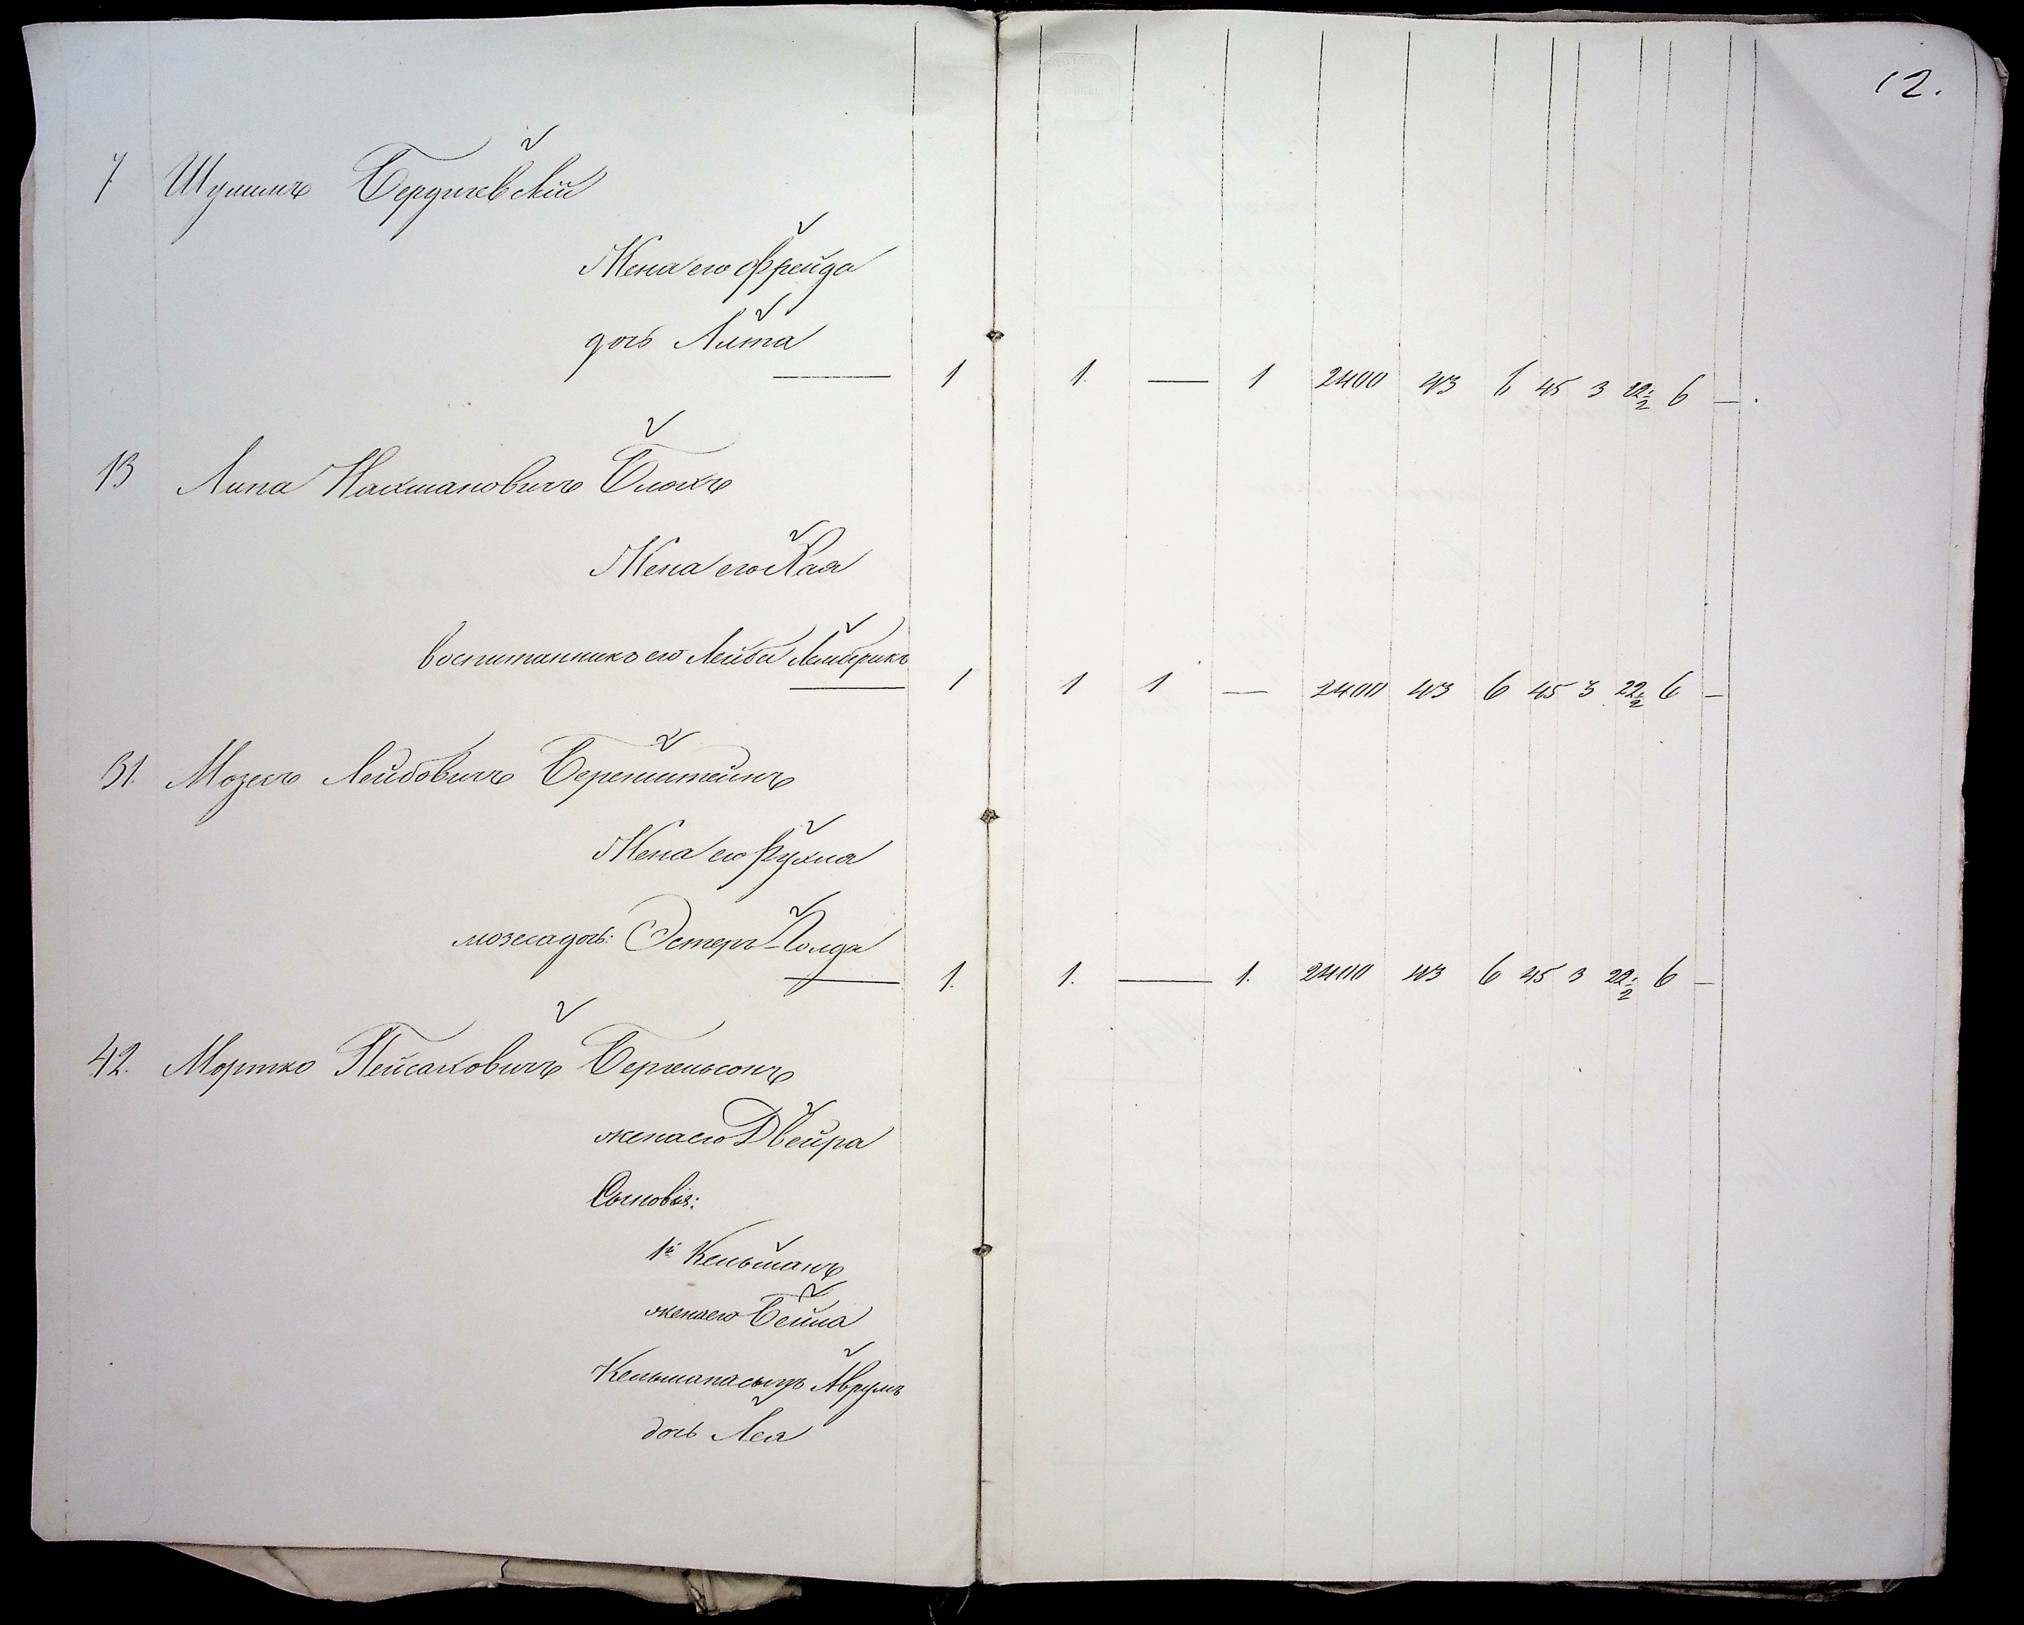 12.
7 Шулимъ Бердичевскій
Жена его Фрейда
дочь
1 1. — 1 2400 43 6 45 3 22 1/2 6 —
13 Липа Нахмановичъ Блохъ
Жена его Хая
воспитанникъ его Лейба
1 1 1 — 2400 43 6 45 3 22 1/2 6 —
31. Мозесъ Лейбовичъ Беренштейнъ
Жена его Рухля
мозеса дочь: Эстеръ-Голда
1. 1. — 1. 2400 43 6 45 3 22 1/2 6 —
42. Мортко Пейсаховичъ Бергельсонъ
жена его Двейра
Сыновья:
1й Кельманъ
жена его Бейла
Кельмана сынъ Аврумъ
дочь Лея